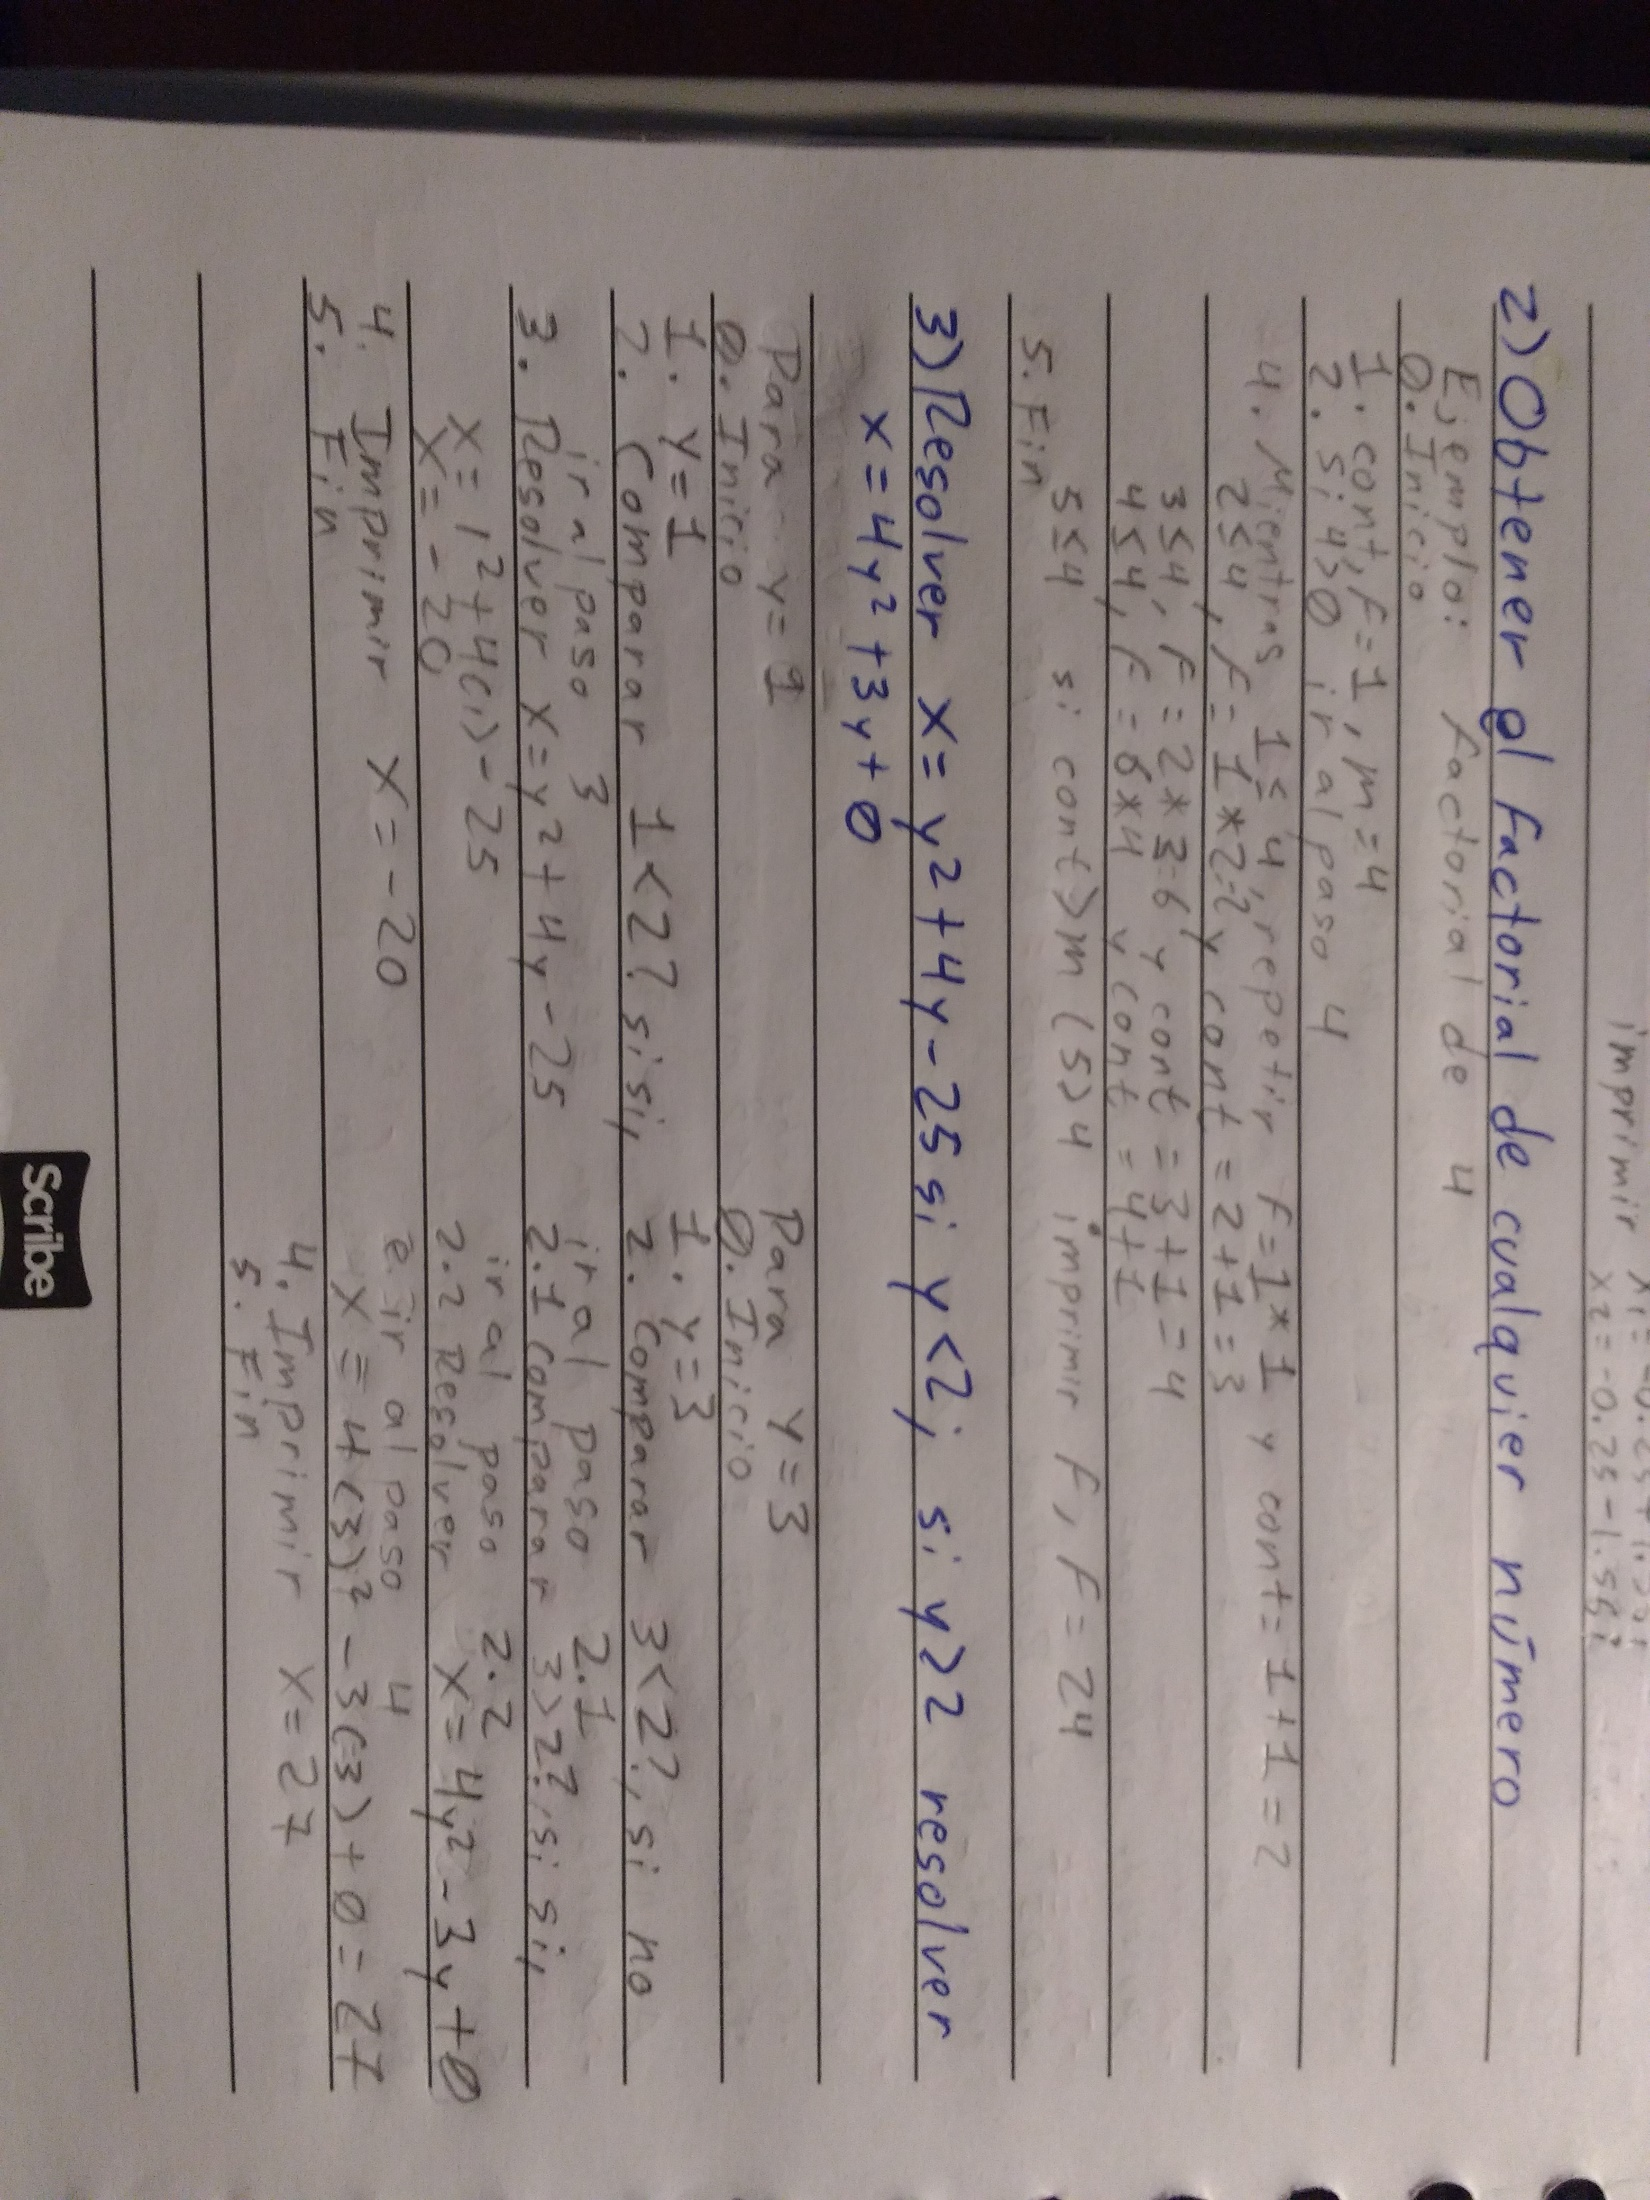 imprimir
x2=-0.25-1.56i
2) Obtener el factorial de cualquier número
Ejemplo: factorial de 4
0. Inicio
1. cont, F=1, m=4
2. Si 4>0 ir al paso 4
4. Mientras 1≤4, repetir F=1*1 y cont=1+1=2
2≤4, F=1*2=2 y cont=2+1=3
3≤4, F=2*3=6 y cont=3+1=4
4≤4, F=6*4 y cont=4+1
5≤4 si cont>m (5>4 imprimir F, F=24
5. Fin
3) Resolver x=y²+4y-25 si y<2; si y≥2 resolver
x=4y²+3y+0
Para y=1
0. Inicio
1. y=1
2. Comparar 1<2? si si,
ir al paso 3
3. Resolver x=y²+4y-25
x=1²+4(1)-25
x=-20
4. Imprimir x=-20
5. Fin
Para y=3
0. Inicio
1. y=3
2. Comparar 3<2?, si no
ir al paso 2.1
2.1 Comparar 3>2?, si si,
ir al paso 2.2
2.2 Resolver x=4y²-3y+0
e ir al paso 4
x=4(3)²-3(3)+0=27
4. Imprimir x=27
5. Fin
Scribe